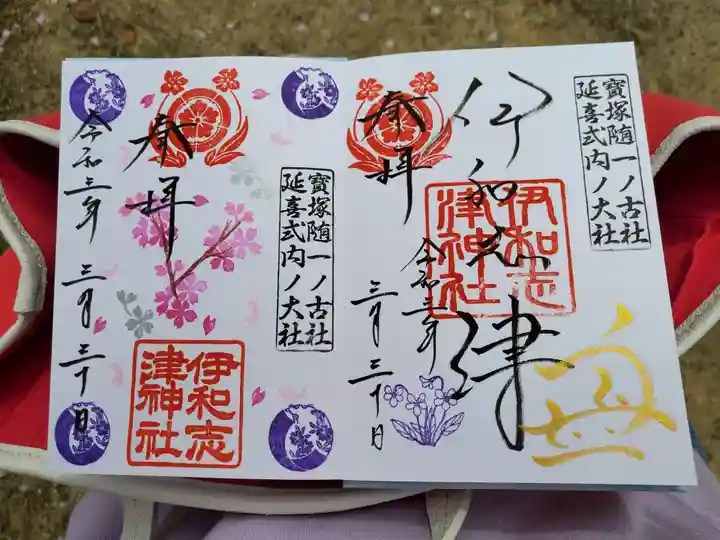 寶塚随一ノ古社
延喜式内ノ大社
伊和志津
奉拝
令和三年
三月三十日
伊和志
津神社
寶塚随一ノ古社
延喜式内ノ大社
奉拝
令和三年
三月三十日
伊和志
津神社